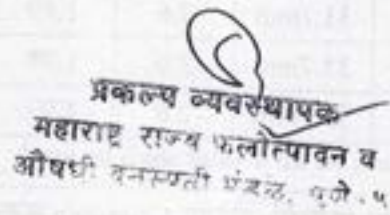 प्रकल्प व्यवस्थापक
महाराष्ट्र राज्य फलोत्पादन व
औषधी वनस्पती मंडळ, पुणे. ५